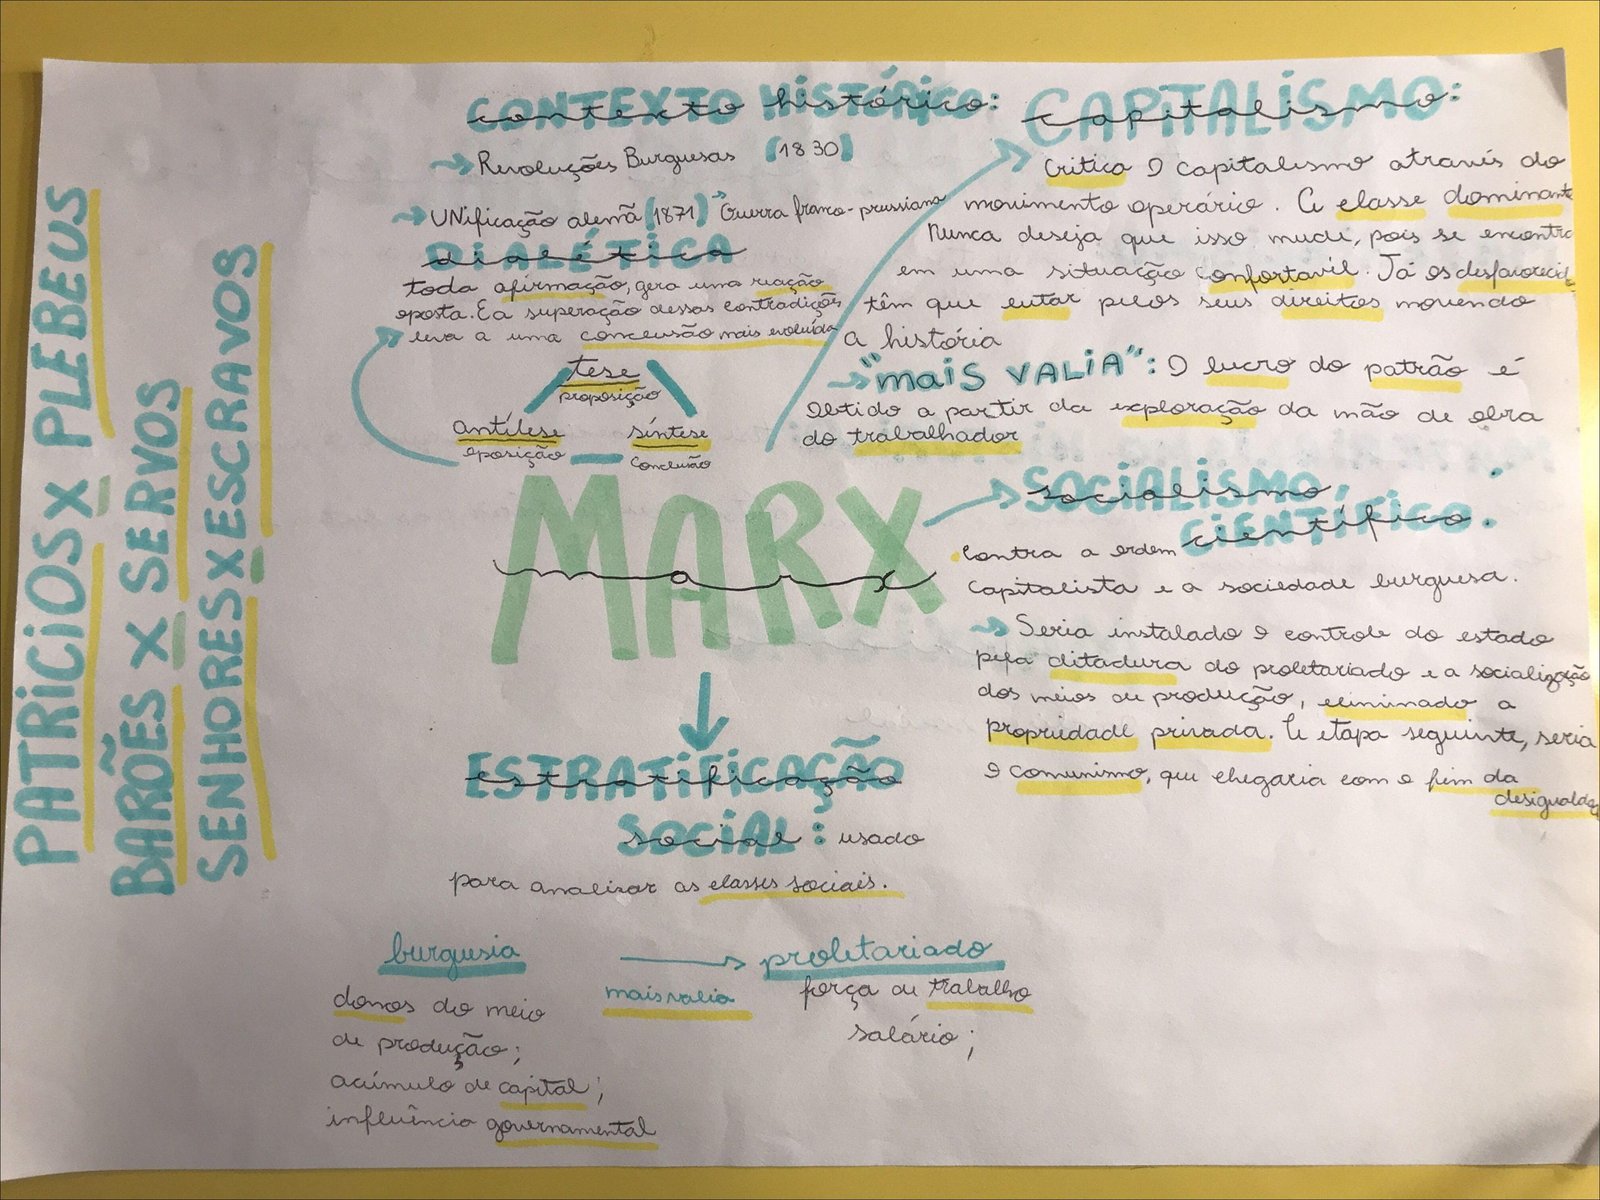 PATRICIOS X PLEBEUS
BARÕES X SERVOS
SENHORES X ESCRAVOS
CONTEXTO HISTÓRICO:
contexto histórico:
→ Revoluções Burguesas (1830)
→ UNificação alemã (1871) → Guerra franco-prussiana
DIALÉTICA
dialética
toda afirmação, gera uma reação
oposta. E a superação dessas contradições
leva a uma conclusão mais evoluída
tese
proposição
antítese
oposição
síntese
conclusão
CAPITALISMO:
capitalismo:
Critica o capitalismo através do
movimento operário. A classe dominante
Nunca deseja que isso mude, pois se encontra
em uma situação confortavel. Já os desfavorecid
têm que lutar pelos seus direitos movendo
a história
→ "MAIS VALIA": O lucro do patrão é
obtido a partir da exploração da mão de obra
do trabalhador
MARX
marx
SOCIALISMO
socialismo
CIENTÍFICO.
científico.
Contra a ordem
capitalista e a sociedade burguesa.
→ Seria instalado o controle do estado
pela ditadura do proletariado e a socialização
dos meios de produção, eliminado a
propriedade privada. A etapa seguinte, seria
o comunismo, que chegaria com o fim da
desigualdad
ESTRATIFICAÇÃO
estratificação
SOCIAL: usado
social
para analisar as classes sociais.
burguesia → proletariado
mais valia
donos do meio
de produção;
acúmulo de capital;
influência governamental
força de trabalho
salário;